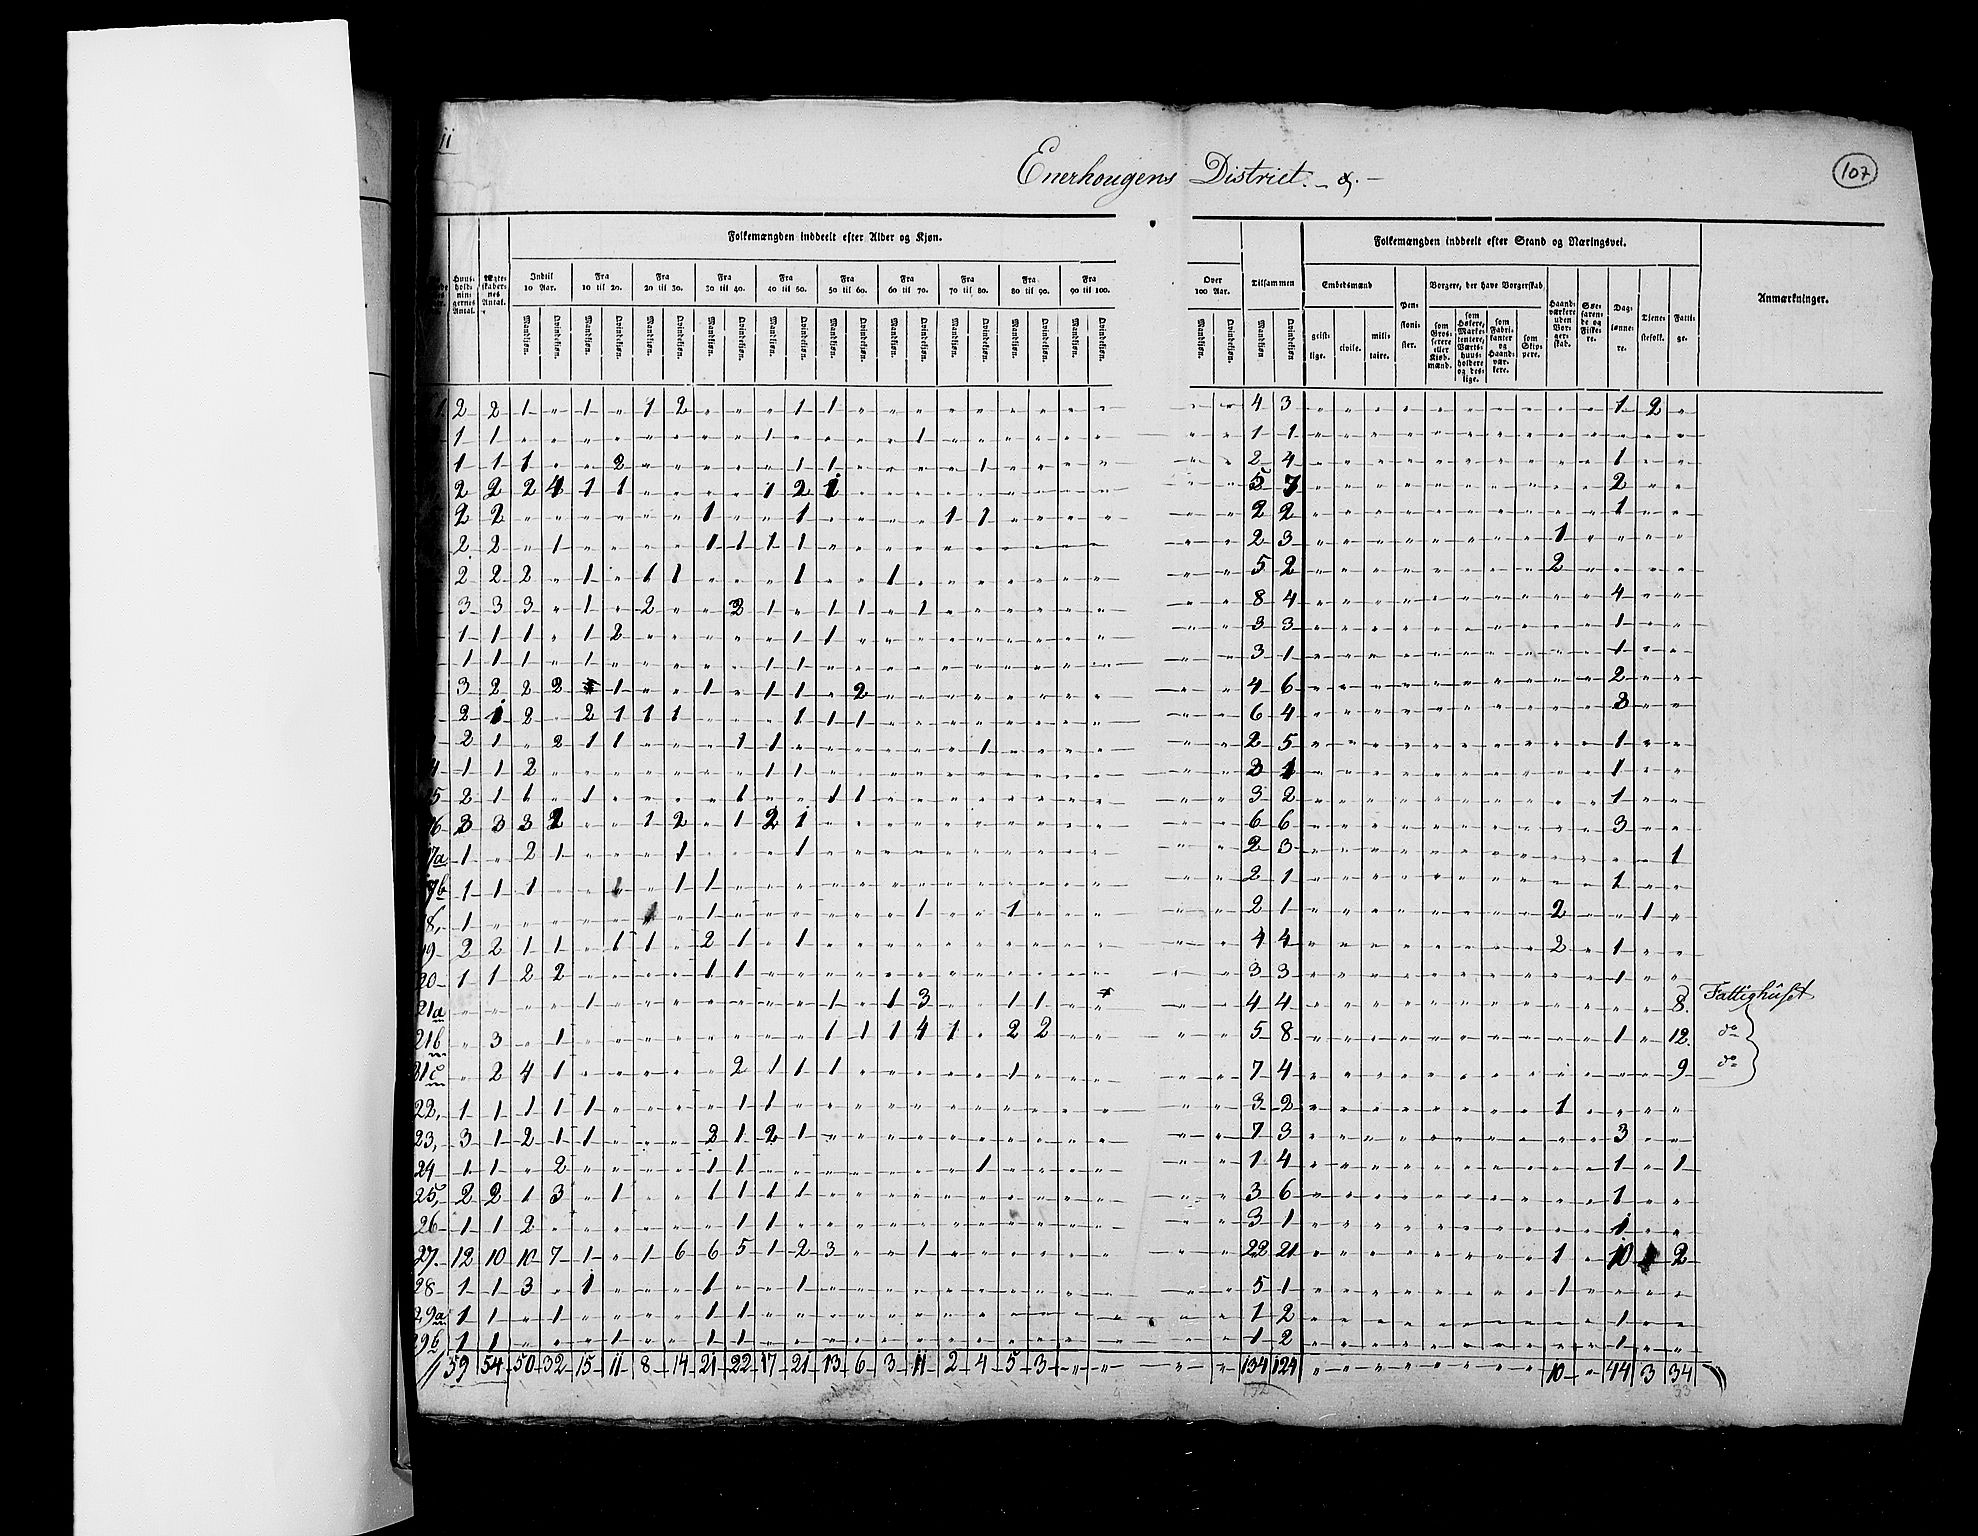 ii
Enerhougens District.
107
Folkemængden inddeelt efter Alder og Kjøn.
Folkemængden inddeelt efter Stand og Næringsvei.
Huus-holdningernes Antal.
Ægteskabernes Antal.
Indtil 10 Aar.
Fra 10 til 20.
Fra 20 til 30.
Fra 30 til 40.
Fra 40 til 50.
Fra 50 til 60.
Fra 60 til 70.
Fra 70 til 80.
Fra 80 til 90.
Fra 90 til 100.
Over 100 Aar.
Tilsammen
Mandkjøn. Qvindekjøn.
Embedsmænd
geistlige. civile. militaire.
Pensionister.
Borgere, der have Borgerskab
som Grosserere eller Kjøbmænd.
som Høkere, Marketentere, Værtshuusholdere og deslige.
som Fabrikanter og Haandværkere.
som Skippere.
Haandværkere uden Borgerskab.
Søefarende og Fiskere.
Daglønnere.
Tjenestefolk.
Fattige.
Anmærkninger.
1. 2 2 1 „ 1 „ 1 2 „ „ „ 1 1 „ „ „ „ „ „ „ „ „ „ „ 4 3 „ „ „ „ „ „ „ „ „ „ 1 2 „
1 1 „ „ „ „ „ „ „ „ 1 „ „ „ „ 1 „ „ „ „ „ „ „ „ 1 1 „ „ „ „ „ „ „ „ „ „ „ „ „
1 1 1 „ „ 2 „ „ „ „ „ 1 1 „ „ „ „ 1 „ „ „ „ „ „ 2 4 „ „ „ „ „ „ „ „ „ „ 1 „ „
2 2 2 4 1 1 „ „ „ „ 1 2 1 „ „ „ „ „ „ „ „ „ „ „ 5 7 „ „ „ „ „ „ „ „ „ „ 2 „ „
2 2 „ „ „ „ „ „ 1 „ „ 1 „ „ „ „ 1 1 „ „ „ „ „ „ 2 2 „ „ „ „ „ „ „ „ „ „ 1 „ „
2 2 „ 1 „ „ „ „ 1 1 1 1 „ „ „ „ „ „ „ „ „ „ „ „ 2 3 „ „ „ „ „ „ „ „ 1 „ „ „ „
2 2 2 „ 1 „ 1 1 „ „ „ 1 „ „ 1 „ „ „ „ „ „ „ „ „ 5 2 „ „ „ „ „ „ „ „ 2 „ „ „ „
3 3 3 „ 1 „ 2 „ „ 2 1 „ 1 1 „ 1 „ „ „ „ „ „ „ „ 8 4 „ „ „ „ „ „ „ „ „ „ 4 „ „
1 1 1 „ 1 2 „ „ „ „ „ 1 1 „ „ „ „ „ „ „ „ „ „ „ 3 3 „ „ „ „ „ „ „ „ „ „ 1 „ „
1 1 1 „ 1 „ „ „ „ „ 1 1 „ „ „ „ „ „ „ „ „ „ „ „ 3 1 „ „ „ „ „ „ „ „ „ „ 1 „ „
3 2 2 2 „ 1 „ „ 1 „ 1 1 „ 2 „ „ „ „ „ „ „ „ „ „ 4 6 „ „ „ „ „ „ „ „ „ „ 2 „ „
2 1 2 „ 2 1 1 1 „ „ „ 1 1 1 „ „ „ „ „ „ „ „ „ „ 6 4 „ „ „ „ „ „ „ „ „ „ 3 „ „
2 1 „ 2 1 1 „ „ „ 1 1 „ „ „ „ „ „ 1 „ „ „ „ „ „ 2 5 „ „ „ „ „ „ „ „ „ „ 1 „ „
4 1 1 2 „ „ „ „ „ „ „ 1 1 „ „ „ „ „ „ „ „ „ „ „ „ 3 1 „ „ „ „ „ „ „ „ „ „ 1 „ „
5 2 1 1 „ 1 „ „ „ „ 1 „ „ 1 1 „ „ „ „ „ „ „ „ „ „ 3 2 „ „ „ „ „ „ „ „ „ „ 1 „ „
6 3 3 3 2 „ „ 1 2 „ 1 2 1 „ „ „ „ „ „ „ „ „ „ „ „ 6 6 „ „ „ „ „ „ „ „ „ „ 3 „ „
7a 1 „ 2 1 „ „ „ 1 „ „ „ 1 „ „ „ „ „ „ „ „ „ „ „ „ 2 3 „ „ „ „ „ „ „ „ „ „ „ „ 1
7b 1 1 1 „ „ „ „ 1 1 „ „ „ „ „ „ „ „ „ „ „ „ „ „ „ 2 1 „ „ „ „ „ „ „ „ „ „ 1 „ „
8, 1 „ „ „ „ „ „ „ 1 „ „ „ „ „ „ 1 „ „ 1 „ „ „ „ „ 2 1 „ „ „ „ „ „ „ „ 2 „ „ 1 „
19 2 2 1 1 „ 1 1 „ 2 1 „ 1 „ „ „ „ „ „ „ „ „ „ „ „ 4 4 „ „ „ „ „ „ „ „ 2 „ 1 „ „
20 1 1 2 2 „ „ „ „ 1 1 „ „ „ „ „ „ „ „ „ „ „ „ „ „ 3 3 „ „ „ „ „ „ „ „ „ „ 1 „ „
21a „ „ „ „ 1 „ „ „ „ „ „ „ 1 „ 1 3 „ „ 1 1 „ „ „ „ 4 4 „ „ „ „ „ „ „ „ „ „ „ „ 8. Fattighuset
21b „ 3 „ 1 „ „ „ „ „ „ „ „ 1 1 1 4 1 „ 2 2 „ „ „ „ 5 8 „ „ „ „ „ „ „ „ „ „ 1 „ 12. do
21c „ 2 4 1 „ „ „ „ „ 2 1 1 1 „ „ „ „ „ 1 „ „ „ „ „ 7 4 „ „ „ „ „ „ „ „ „ „ „ „ 9 do
22, 1 1 1 1 1 „ „ „ „ 1 1 „ „ „ „ „ „ „ „ „ „ „ „ „ 3 2 „ „ „ „ „ „ „ „ 1 „ „ „ „
23, 3 1 2 1 1 „ „ „ 2 1 2 1 „ „ „ „ „ „ „ „ „ „ „ „ 7 3 „ „ „ „ „ „ „ „ „ „ 3 „ „
24 1 1 „ 2 „ „ „ „ 1 1 „ „ „ „ „ „ „ 1 „ „ „ „ „ „ 1 4 „ „ „ „ „ „ „ „ „ „ 1 „ 1
25, 2 2 1 3 „ 1 „ „ 1 1 1 1 „ „ „ „ „ „ „ „ „ „ „ „ 3 6 „ „ „ „ „ „ „ „ „ „ 1 „ „
26 1 1 2 „ „ „ „ „ „ 1 1 „ „ „ „ „ „ „ „ „ „ „ „ „ 3 1 „ „ „ „ „ „ „ „ „ „ 1 „ „
27. 12 10 10 7 1 „ 1 6 6 5 1 2 3 „ „ 1 „ „ „ „ „ „ „ „ 22 21 „ „ „ „ „ „ „ „ 1 „ 10 2
28 1 1 3 „ 1 „ „ „ 1 „ „ 1 „ „ „ „ „ „ „ „ „ „ „ „ 5 1 „ „ „ „ „ „ „ „ 1 „ „ „ „
29a 1 1 „ 1 „ „ „ „ 1 1 „ „ „ „ „ „ „ „ „ „ „ „ „ „ 1 2 „ „ „ „ „ „ „ „ „ „ 1 „ „
29b 1 1 „ „ „ 1 „ „ 1 1 „ „ „ „ „ „ „ „ „ „ „ „ „ „ 1 2 „ „ „ „ „ „ „ „ „ „ 1 „ „
59 54 50 32 15 11 8 14 21 22 17 21 13 6 3 11 2 4 5 3 „ „ „ „ 134 124 „ „ „ „ „ „ „ „ 10 „ 44 3 34
132 33